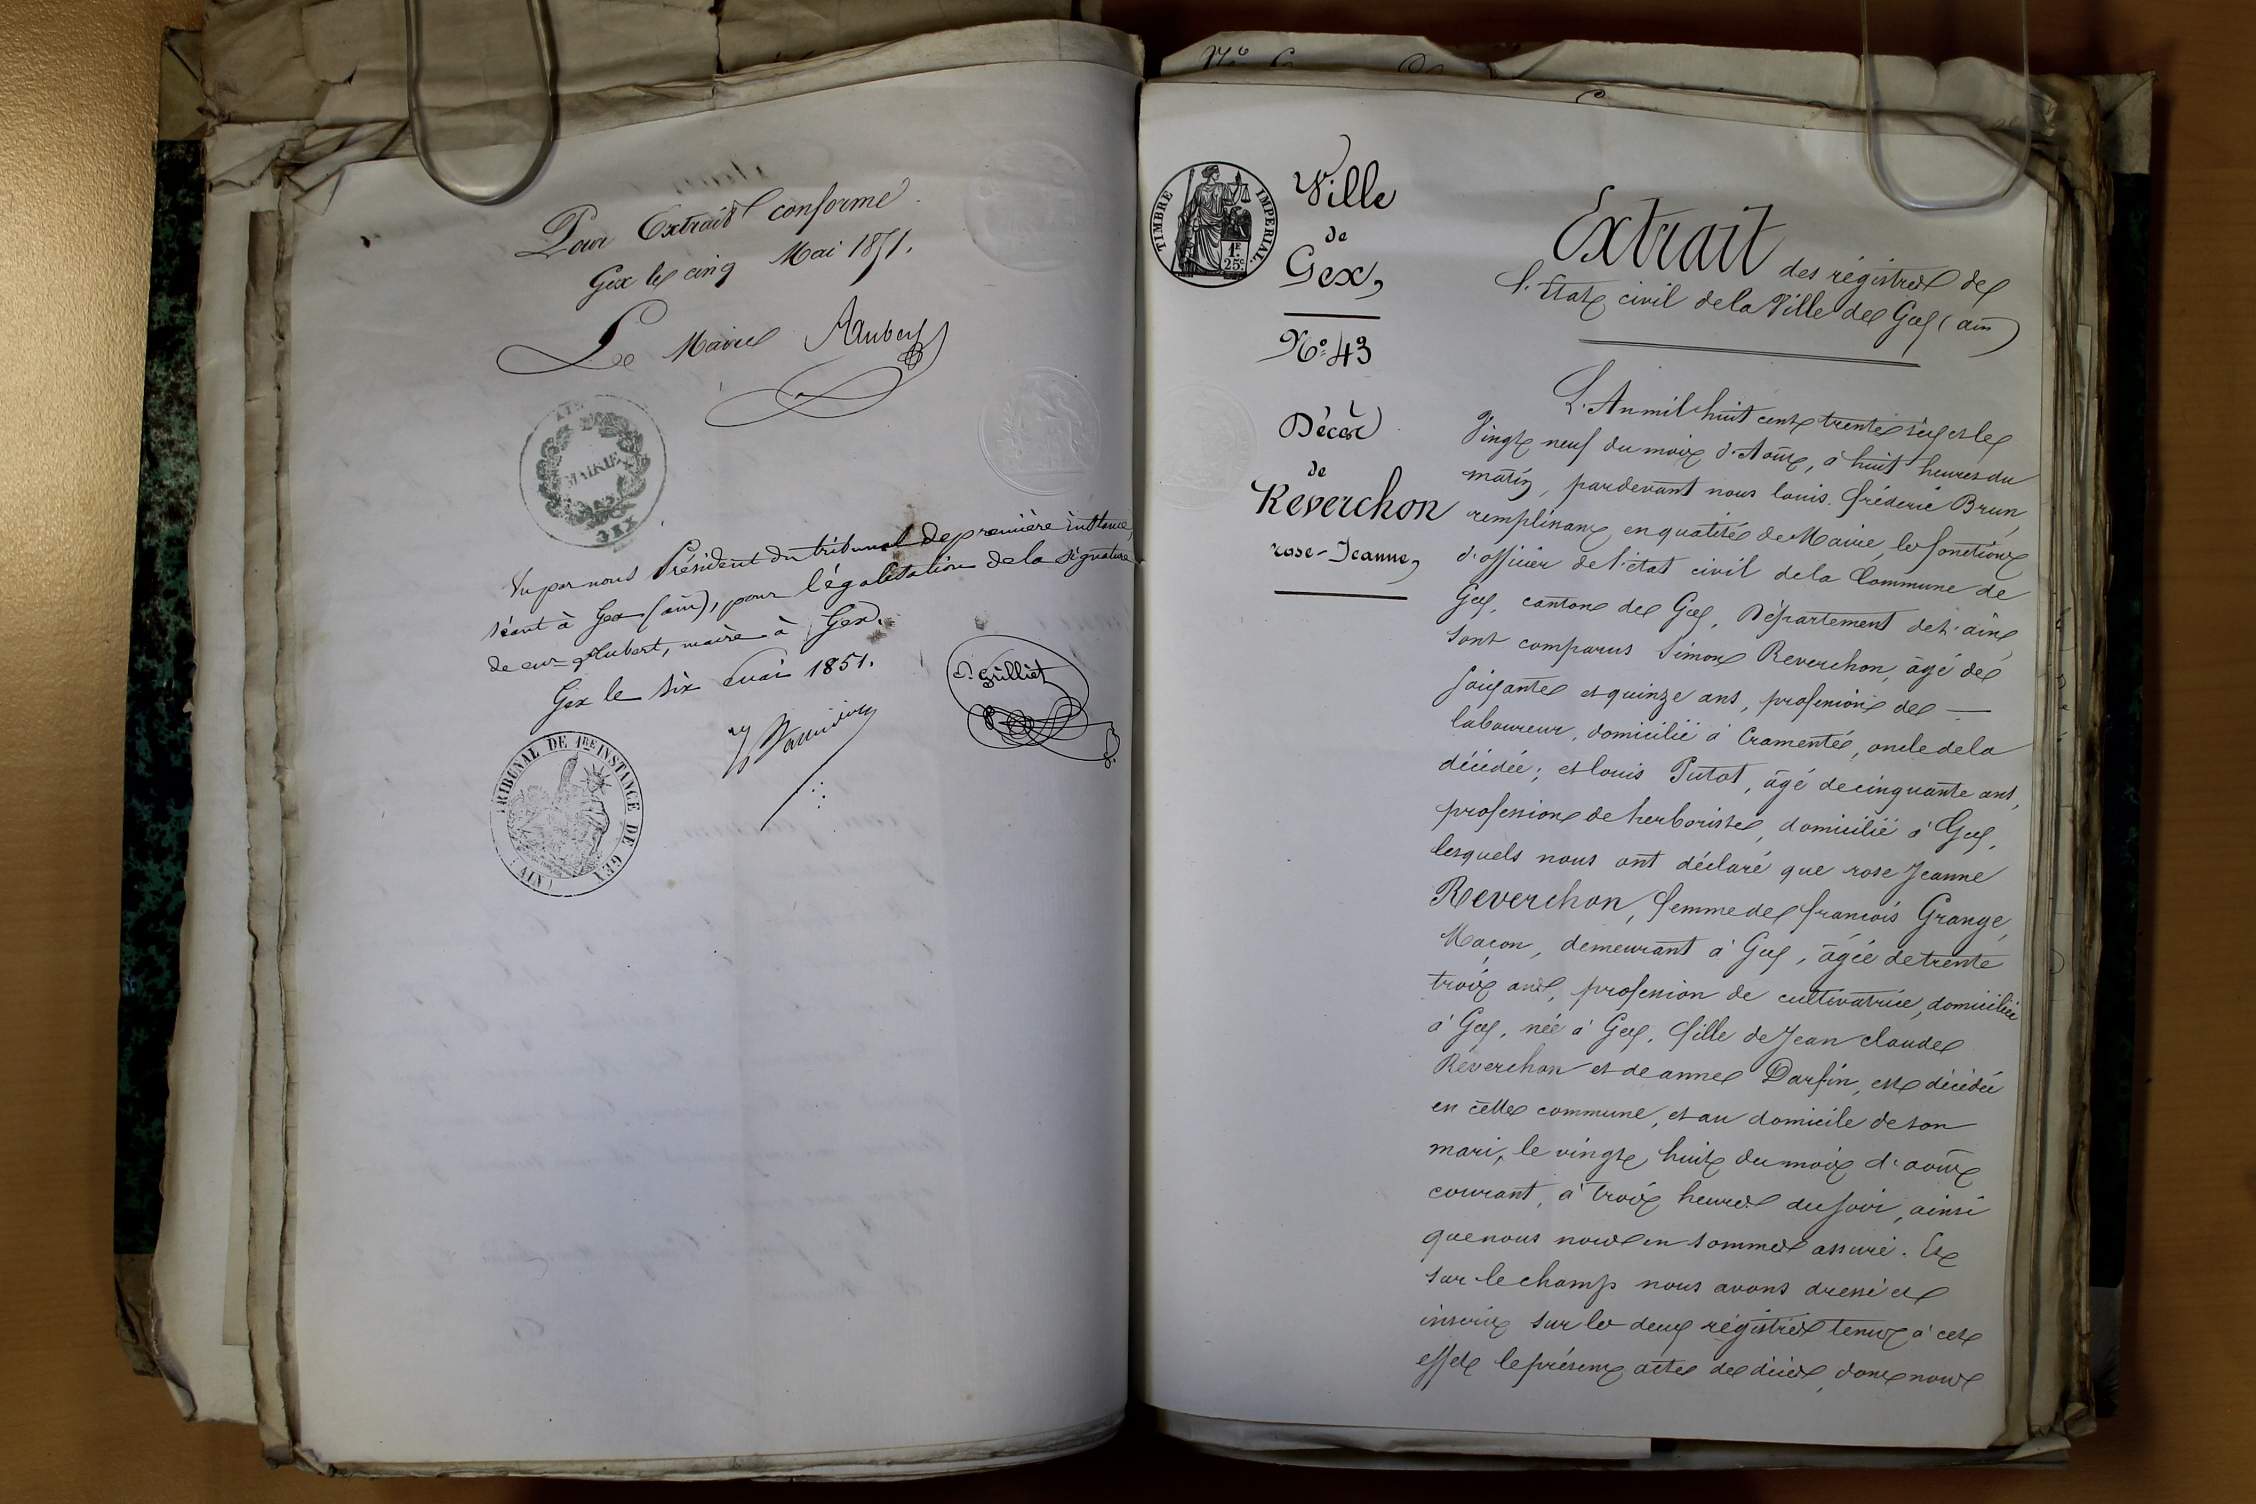 Pour Extrait conforme
Gex le cinq Mai 1851.
Le Maire Aubert
MAIRIE
GEX
Vu par nous Président du tribunal de première instance,
séant à Gex (ain), pour légalisation de la signature
de Mr Aubert, maire à Gex.
Gex le six mai 1851.
Guilliet
TRIBUNAL DE 1RE INSTANCE DE GEX
(AIN)
TIMBRE IMPERIAL
1F.
25c.
Ville
de
Gex,
No. 43
Décès
de
Reverchon
rose-Jeanne,
Extrait des régistres de
l'Etat civil de la Ville de Gex (ain)
L'An mil huit cent trente six et le
Vingt neuf du mois d'Août, à huit heures du
matin, pardevant nous louis fréderic Brun,
remplissant en qualité de Maire, les fonctions
d'officier de l'état civil de la Commune de
Gex, canton de Gex, Département de l'ain,
sont comparus Simon Reverchon, âgé de
soixante et quinze ans, profession de —
laboureur, domicilié à Cramenté, oncle de la
décédée; et louis Putot, âgé de cinquante ans,
profession de herboriste, domicilié à Gex,
lesquels nous ont déclaré que rose Jeanne
Reverchon, femme de françois Grange,
Maçon, demeurant à Gex, âgée de trente
trois ans, profession de cultivatrice, domiciliée
à Gex, née à Gex, fille de Jean claude
Reverchon et de anne Darfin, est décédée
en cette commune, et au domicile de son
mari, le vingt huit du mois d'août
courant, à trois heures du soir, ainsi
que nous nous en sommes assuré. Et
sur le champ nous avons dressé et
inscrit sur les deux régistres tenus à cet
effet le présent acte de décès, dont nous